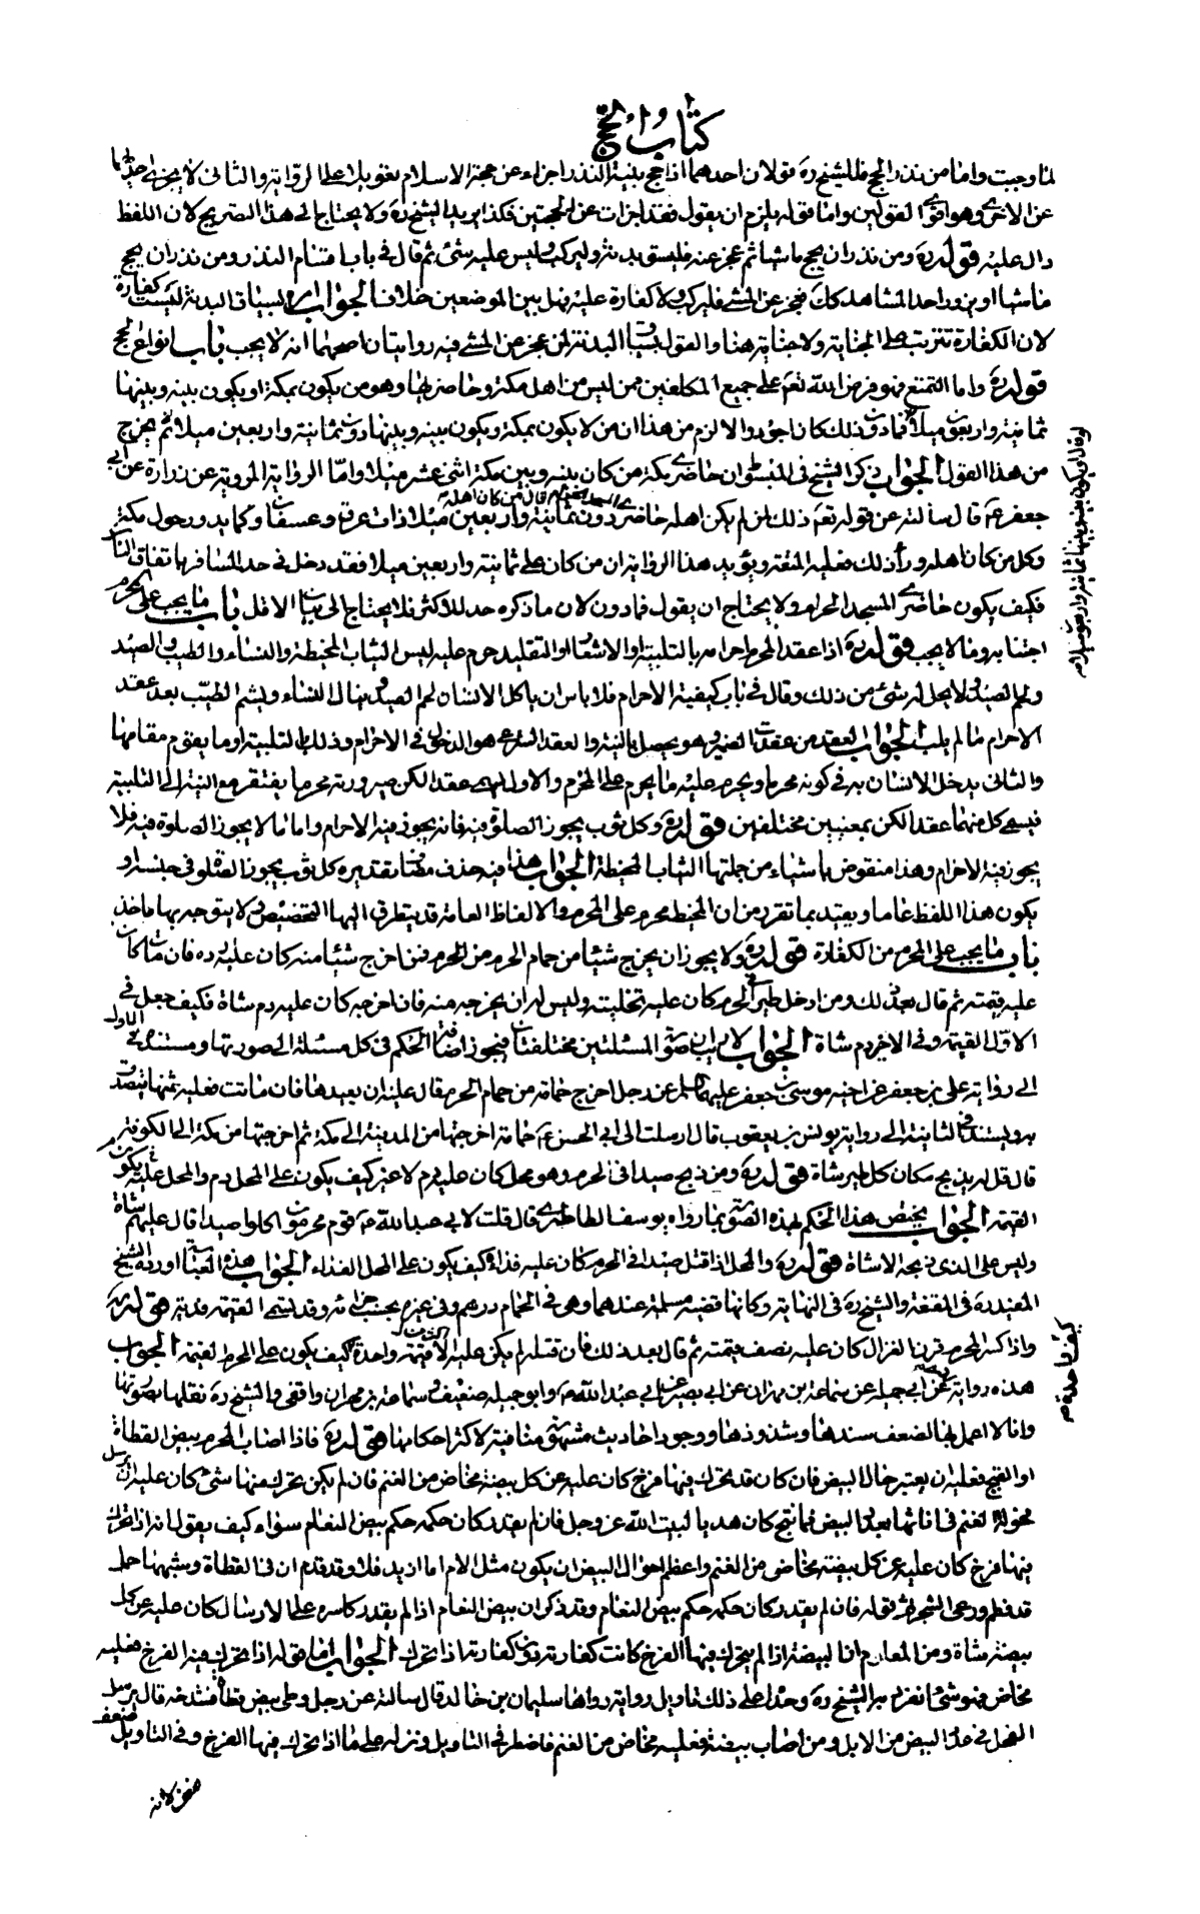 كتاب الحج
لما وجبت واما من نذر الحج فللشيخ ره قولان احدهما اذا حج بنية النذر اجزاء عن حجة الاسلام تعويلا على الروايتر والثانى لا يجزى احديهما
عن الاخرى وهو اقوى القولين واما قوله يلزم ان يقول فقد اجزات عن الحجتين فكذا يريد الشيخ ره ولا يحتاج الى هذا التصريح لان اللفظ
دال عليه قوله ره ومن نذر ان يحج ماشيا ثم عجز عنه فليسق بدنة وليركب وليس عليه شئ ثم قال فى باب اقسام النذر ومن نذر ان يحج
ماشيا او يزور احد المشاهد كك فعجز عن المشى فليركب ولا كفارة عليه فهل بين الموضعين خلاف الجواب سياق البدنة ليست كفارة
لان الكفارة تترتب على الجناية ولا جناية هنا والقول بسياق البدنة لمن عجز عن المشى فيه روايتان اصحهما انه لا يجب باب انواع الحج
قوله ره واما التمتع فهو فرض الله تعم على جميع المكلفين ممن ليس من اهل مكة وحاضريها وهو من يكون بمكة او يكون بينه وبينها
ثمانية واربعون ميلا فما دون ذلك كان اجود والا لزم من هذا ان من لا يكون بمكة ويكون بينه وبينها دون ثمانية واربعين ميلا ثم يخرج
من هذا القول الجواب ذكر الشيخ فى المبسوط ان حاضرى مكة من كان بينه وبين مكة اثنى عشر ميلا واما الرواية المروية عن زرارة عن ابى
جعفر عم قال سالته عن قوله تعم ذلك لمن لم يكن اهله حاضرى المسجد الحرام قال من كان اهله دون ثمانية واربعين ميلا ذات عرق وعسفان وكما يدور حول مكة
وكل من كان اهله وراء ذلك فعليه المتعة ويؤيد هذا الرواية ان من كان على ثمانية واربعين ميلا فقد دخل فى حد المسافر باتفاق
فكيف يكون حاضرى المسجد الحرام ولا يحتاج ان يقول فما دون لان ما ذكره حد للاكثر فلا يحتاج الى بيان الاقل باب ما يجب على المحرم
اجتنابه وما لا يجب قوله ره اذا عقد المحرم احرامه بالتلبية او الاشعار او التقليد حرم عليه لبس الثياب المخيطة والنساء والطيب والصيد
ولحم الصيد ولا يحل له شئ من ذلك وقال فى باب كيفية الاحرام فلا باس ان ياكل الانسان لحم الصيد وينال النساء ويشم الطيب بعد عقد
الاحرام ما لم يلب الجواب العقد من عقدت الضمير وهو يحصل بالنية والعقد الشرعى هو الدخول فى الاحرام وذلك بالتلبية او ما يقوم مقامها
والثانى يدخل الانسان به فى كونه محرما ويحرم عليه ما يحرم على المحرم والاول يسمى عقدا لكن صيرورته محرما يفتقر مع النية الى التلبية
فيسمى كل منهما عقدا لكن بمعنيين مختلفين قوله ره وكل ثوب يجوز الصلوة فيه فانه يجوز فيه الاحرام واما ما لا يجوز الصلوة فيه فلا
يجوز فيه الاحرام وهذا منقوض باشياء من جملتها الثياب المخيطة الجواب هذا فيه حذف مضاف تقديره كل ثوب يجوز الصلوة فى جنسه او
يكون هذا اللفظ عاما ويقيد بما تقرر من ان المخيط محرم على المحرم والالفاظ العامة قد يتطرق اليها التخصيص ولا يتوجه بها ماخذ
باب ما يجب على المحرم من الكفارة قوله ره ولا يجوز ان يخرج شيئا من حمام الحرم من الحرم فمن اخرج شيئا منه كان عليه رده فان مات كان
عليه قيمته ثم قال بعد ذلك ومن ادخل طيرا الحرم كان عليه تخليته وليس له ان يخرجه منه فان اخرجه كان عليه دم شاة فكيف جعل فى
الاول القيمة وفى الاخير دم شاة الجواب لا ريب ان صورتى المسئلتين مختلفتان فيجوز اضافة الحكم فى كل مسئلة الى صورتها ومستنده فى الاولى
الى رواية على بن جعفر عن اخيه موسى بن جعفر عليهما السلم عن رجل اخرج حمامة من حمام الحرم قال عليه ان يعيدها فان ماتت فعليه ثمنها يتصدق
به ويستند فى الثانية الى رواية يونس بن يعقوب قال ارسلت الى ابى الحسن عم حمامة اخرجتها من المدينة الى مكة ثم اخرجتها من مكة الى الكوفة
قال قل له يذبح مكان كل طير شاة قوله ره ومن ذبح صيدا فى الحرم وهو محل كان عليه دم لا غير كيف يكون على المحل دم والمحل عليه
القيمة الجواب يختص هذا الحكم بهذه الصورة بما رواه يوسف الطاطرى قال قلت لابى عبد الله عم قوم محرمون اكلوا صيدا قال عليهم شاة
وليس على الذى ذبحه الا شاة قوله ره والمحل اذا قتل صيدا فى الحرم كان عليه فداؤه كيف يكون على المحل الفداء الجواب هذه العبارة اوردها الشيخ
المفيد ره فى المقنعة والشيخ ره فى النهاية وكانها قضية مسلمة عندهما وهى فى الحمام درهم وفى غيره بحسب جزائه وقد تسمى القيمة فدية قوله ره
واذا كسر المحرم قرنى الغزال كان عليه نصف قيمته ثم قال بعد ذلك فان قتله لم يكن عليه الا قيمة واحدة كيف يكون على المحرم القيمة الجواب
هذه رواية عن ابى جميله عن سماعة بن مهران عن ابى بصير عن ابى عبد الله عم وابو جميلة ضعيف وسماعة بن مهران واقفى والشيخ ره نقلها بصورتها
وانا لا اعمل بها لضعف سندها وشذوذها ووجود احاديث مشهورة منافية لاكثر احكامها قوله ره فاذا اصاب المحرم بيض القطاة
او القبج فعليه ان يعتبر حال البيض فان كان قد تحرك فيها فرخ كان عليه عن كل بيضة مخاض من الغنم فان لم يكن تحرك فيها شئ كان عليه ان يرسل
فحولة الغنم فى اناثها بعدد البيض فما نتج كان هديا لبيت الله عز وجل فان لم يقدر كان حكمه حكم بيض النعام سواء كيف يقول انه اذا تحرك
فيها فرخ كان عليه عن كل بيضة مخاض من الغنم واعظم احوال البيض ان يكون مثل الام اما ازيد فلا وقد قدم ان فى القطاة وشبهها حمل
قد فطم ورعى الشجر ثم قوله فان لم يقدر كان حكمه حكم بيض النعام وقد ذكر ان بيض النعام اذا لم يقدر كاسره على الارسال كان عليه عن كل
بيضة شاة ومن المعلوم ان البيضة اذا لم يتحرك فيها الفرخ كانت كفارته دون كفارته اذا تحرك الجواب اما قوله اذا تحرك فيه الفرخ فعليه
مخاض فهو شئ انفرد به الشيخ ره وحمل على ذلك تاويل رواية رواها سليمان بن خالد قال سالته عن رجل وطى بيض قطاة فشدخه قال يرسل
الفحل فى عدد البيض من الابل ومن اصاب بيضة فعليه مخاض من الغنم فاضطر فى التاويل ونزله على ما اذا تحرك فيها الفرخ وفى التاويل ضعف
لو قال او يكون بينه وبينها ثمانية واربعون ميلا